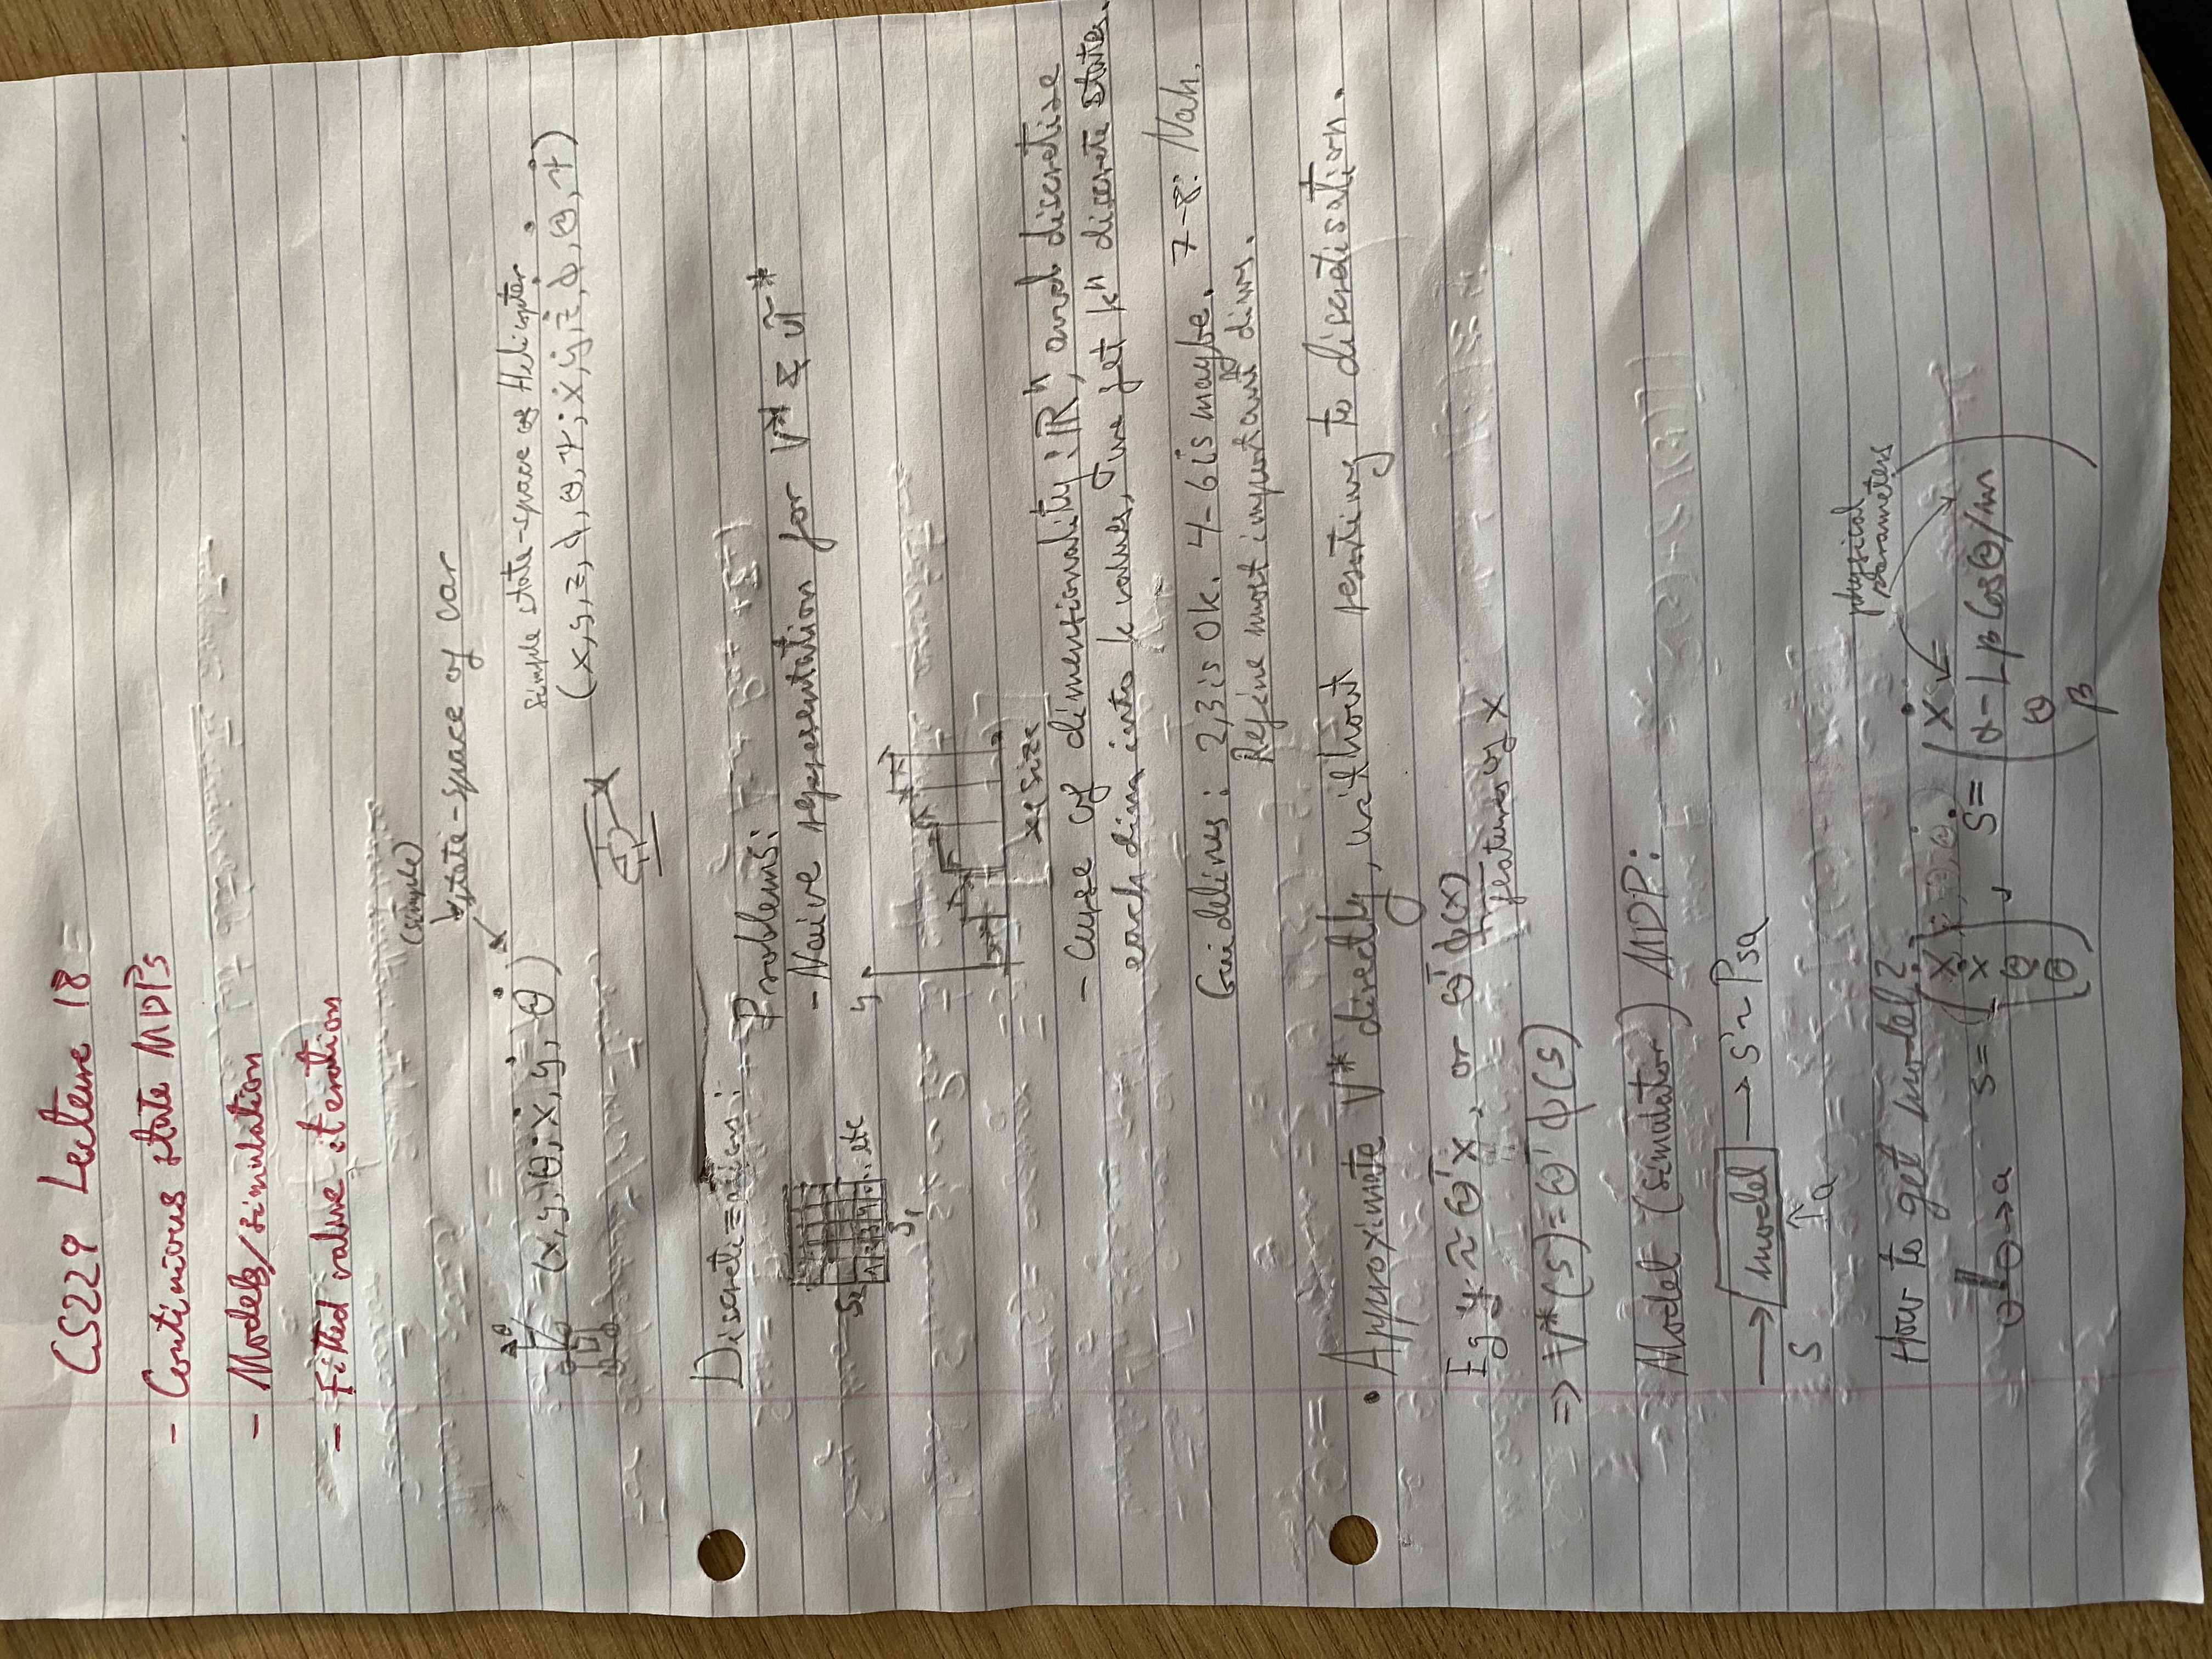 CS229 Lecture 18
- Continious state MDPs
- Models/simulation
- Fitted value iteration
(simple)
state-space of car
θ
(x, y, θ; ẋ, ẏ, θ̇)
simple state-space of Helicopter
(x, y, z, ϕ, θ, ψ; ẋ, ẏ, ż, ϕ̇, θ̇, ψ̇)
Discretization:
Problems:
- Naive representation for V* & π*
S₂
1 2 3 4 .. etc
S₁
y
x, size
- Curse of dimensionality: ℝⁿ, and discretise
each dim into k values, we get kⁿ discrete states.
Guidelines: 2,3 is Ok. 4-6 is maybe. 7-8: Nah.
Refine most important dims.
• Approximate V* directly, without resorting to discretisation.
Eg y ≈ θᵀx, or θᵀϕ(x)
features of x
=> V*(s) = θᵀϕ(s)
Model (simulator) MDP:
→ model → s' ~ Psa
S
↑a
physical
parameters
How to get model?
→ a
s = (x ẋ θ θ̇), ṡ = (ẋ
α - Lβ Cosθ/m
θ
β)